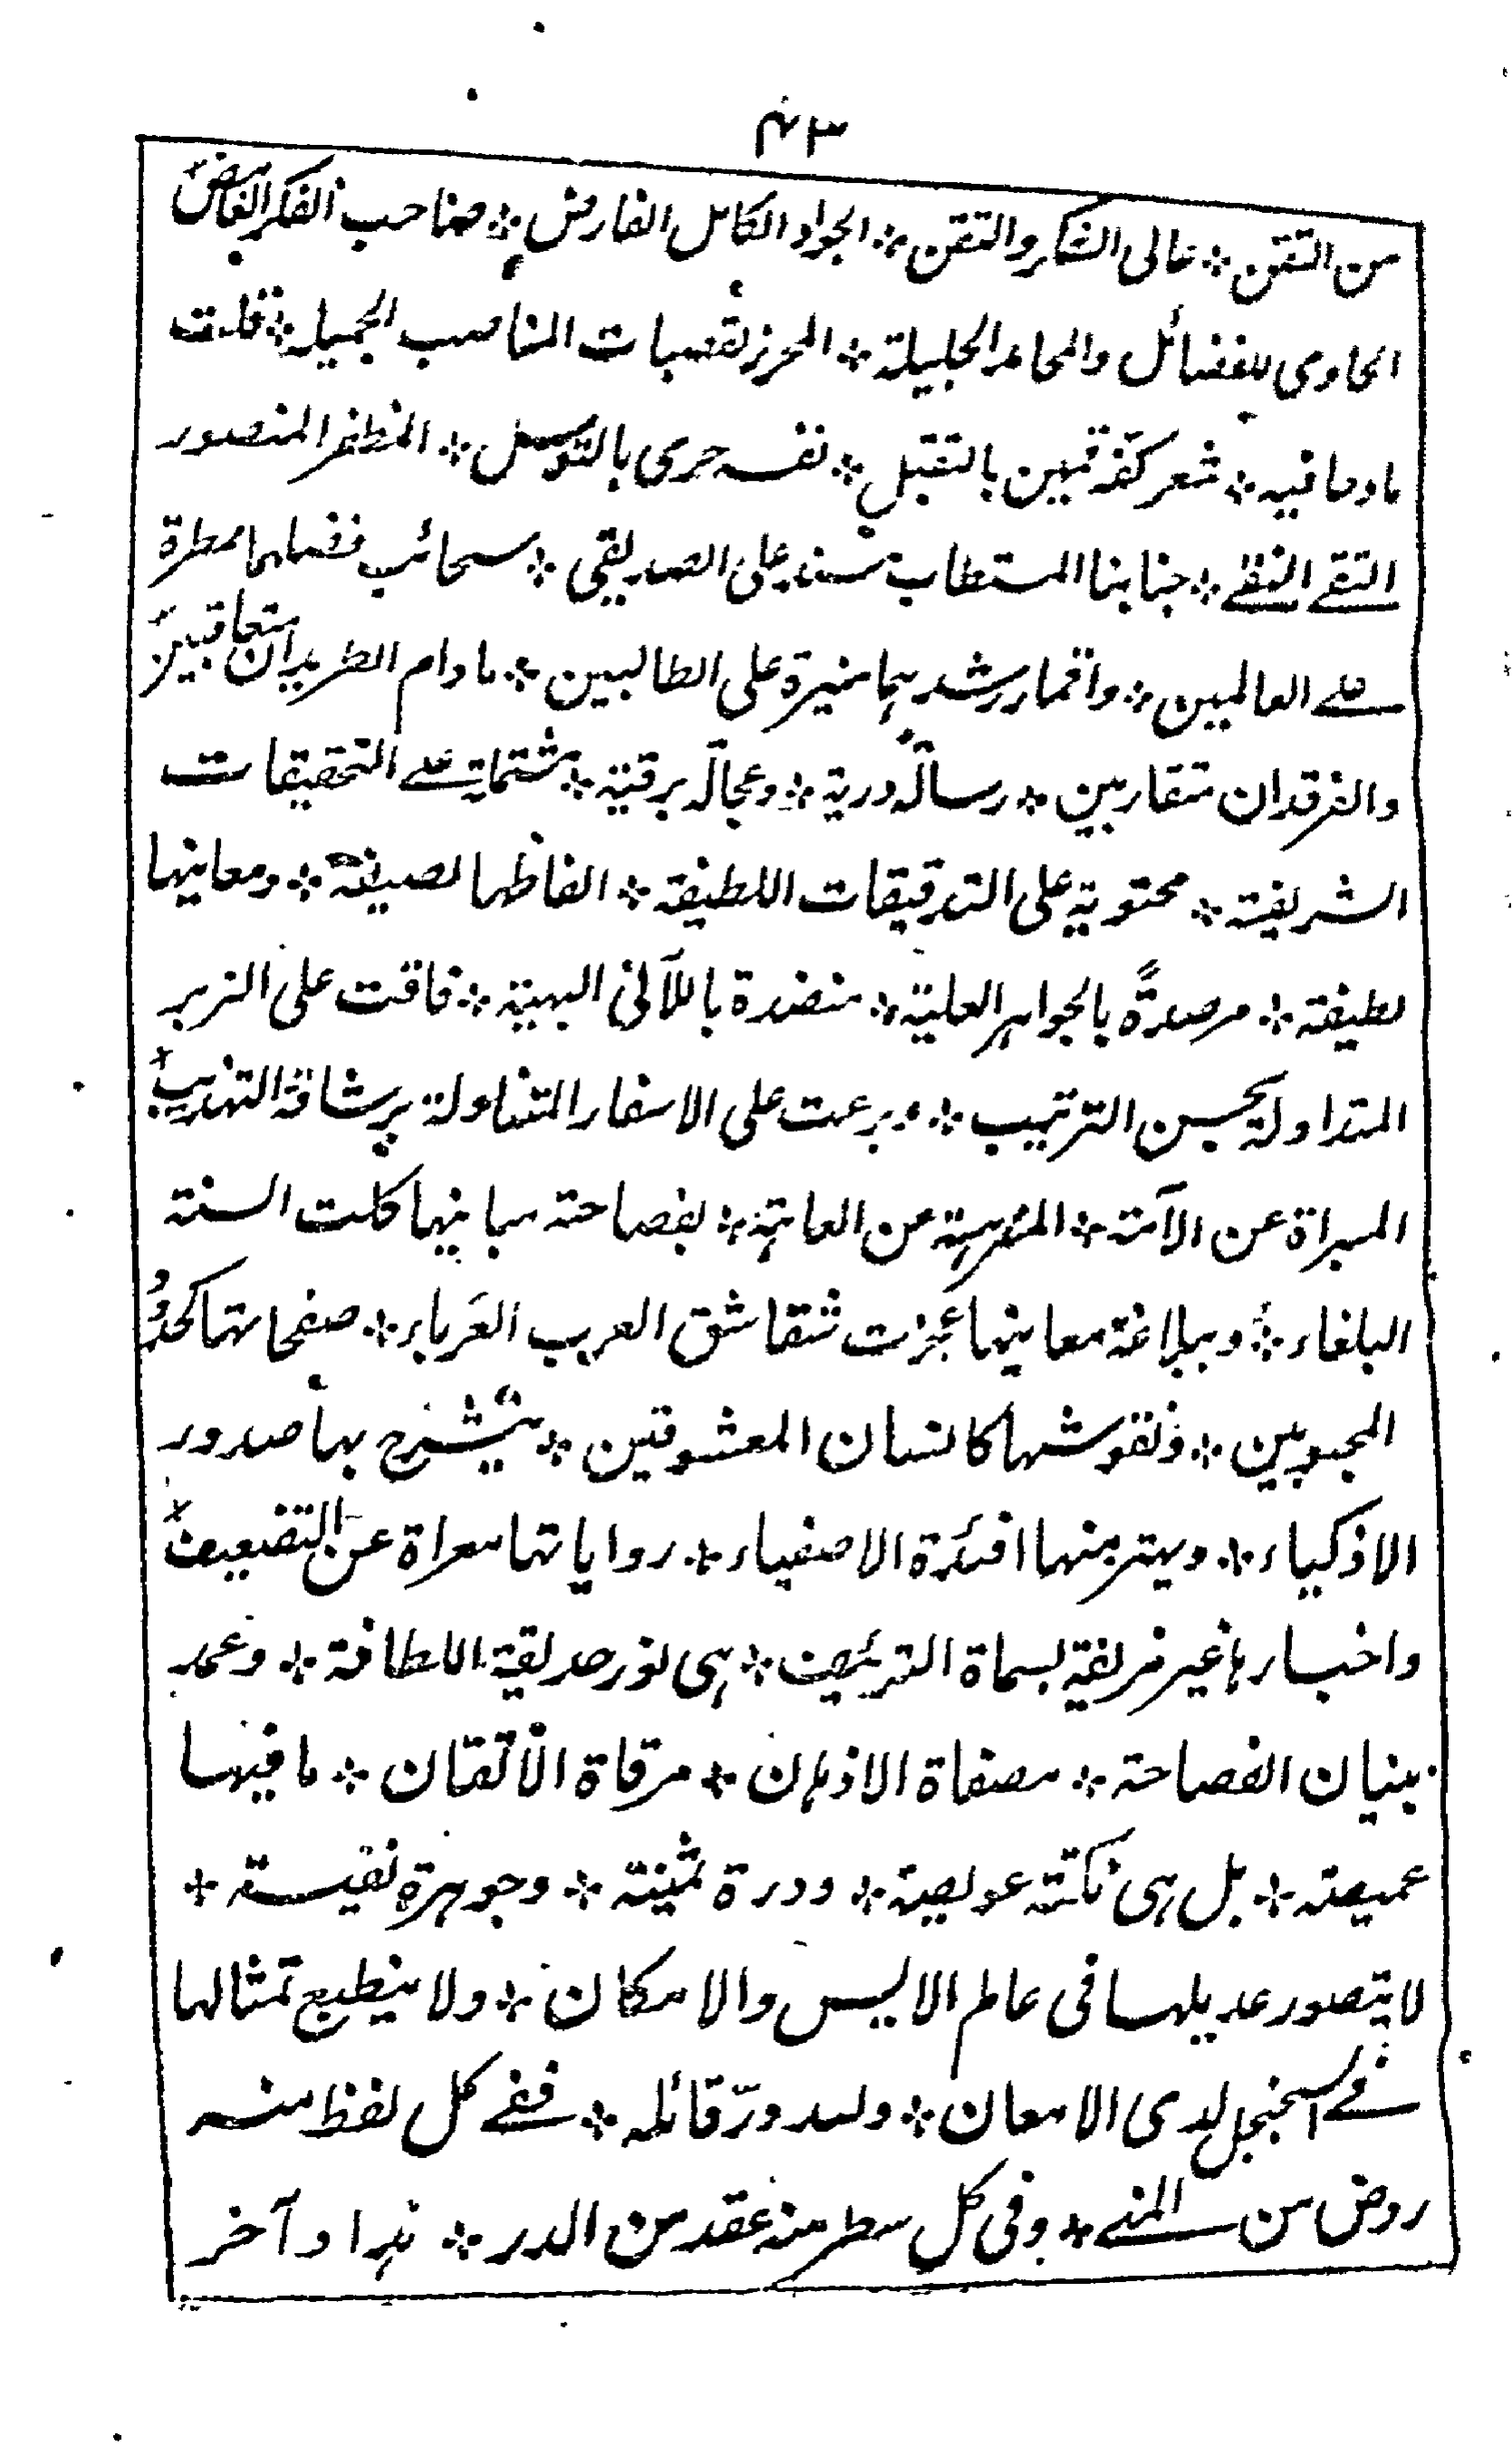 ٤٣
من التقن ※ عالى الشكر والتقن ※ الجواد الكامل الفارض ※ صاحب الفكر الغامض
الحاوى للفضائل والمحامد الجليلة ※ المحرز لقصبات المناصب الجميلة ※ قلت
مادحا فيه ※ شعر كفه قمين بالتقبل ※ نفسه حرى بالتوسل ※ المظفر المنصور
التقے النقے ※ جنابنا المستطاب سند على الصديقى ※ سحائب فضلهما ممطرة
علے العالمين ※ واقمار رشدہما منيرة على الطالبين ※ مادام الطريدان متعاقبين
والفرقدان متقاربين ※ رسالة درية ※ وعجالة برقية ※ مشتملة علے التحقيقات
الشريفة ※ محتوية على التدقيقات اللطيفة ※ الفاظها لصيفة ※ ومعانيها
لطيفة ※ مرصدة بالجواہر العلية ※ منضدة باللآلئ البهية ※ فاقت على الزبر
المتداولة بحسن الترتيب ※ وبرعت على الاسفار المتناولة برشاقة التهذيب
المبراة عن الآمة ※ المنزہة عن العاہة ※ بفصاحة مبانيها كلت السنة
البلغاء ※ وببلاغة معانيها عجزت شقاشق العرب العرباء ※ صفحاتها كخدود
المحبوبين ※ ونقوشها كانسان المعشوقين ※ ينشرح بها صدور
الاذكياء ※ ويهتز منها افئدة الاصفياء ※ رواياتها معراة عن التضعيف
واخبارہا غير مزيفة بسماة التزئيف ※ ہى نور حديقة اللطافة ※ وعمد
بنيان الفصاحة ※ مصفاة الاذہان ※ مرقاة الاتقان ※ مافيها
عميصة ※ بل ہى نكتة عويصة ※ ودرة ثمينة ※ وجوہرة نفيسة ※
لا يتصور عديلها فى عالم الاليس والامكان ※ ولا ينطبع تمثالها
فے السجنجل لدى الامعان ※ ولله درّ قائله ※ ففے كل لفظ منه
روض من المنے ※ وفى كل سطر منه عقد من الدرر ※ ہذا وآخر